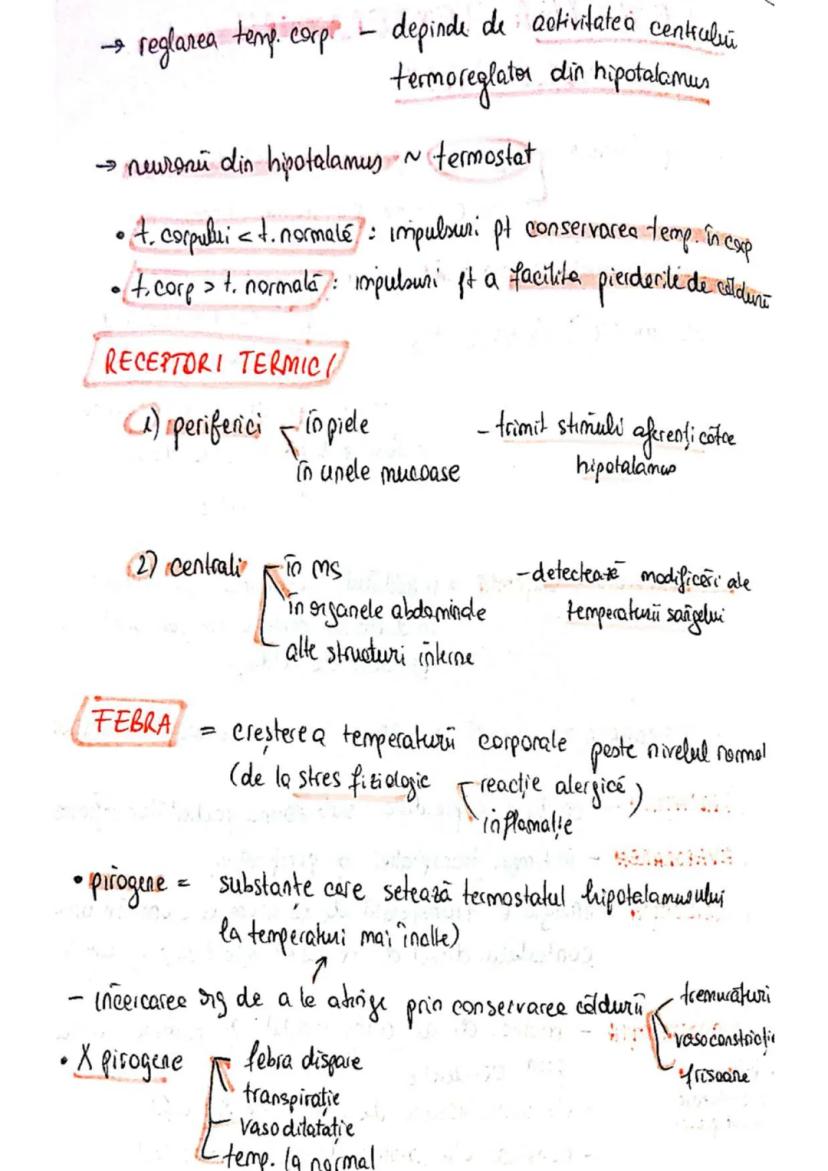 → reglarea temp. corp – depinde de activitatea centrului
termoreglator din hipotalamus
→ neuronii din hipotalamus ~ termostat
• t. corpului < t. normală : impulsuri pt conservarea temp. în corp
• t. corp > t. normală : impulsuri pt a facilita pierderile de căldură
RECEPTORI TERMICI
1) periferici – în piele – trimit stimuli aferenți către
în unele mucoase hipotalamus
2) centrali – în MS – detectează modificări ale
în organele abdominale temperaturii sângelui
alte structuri interne
FEBRA = creșterea temperaturii corporale peste nivelul normal
(de la stres fiziologic reacție alergică)
inflamație
• pirogene = substanțe care setează termostatul hipotalamusului
la temperaturi mai înalte)
– încercarea org de a le atinge prin conservarea căldurii tremurături
vasoconstricție
frisoane
• X pirogene febra dispare
transpirație
vasodilatație
temp. la normal